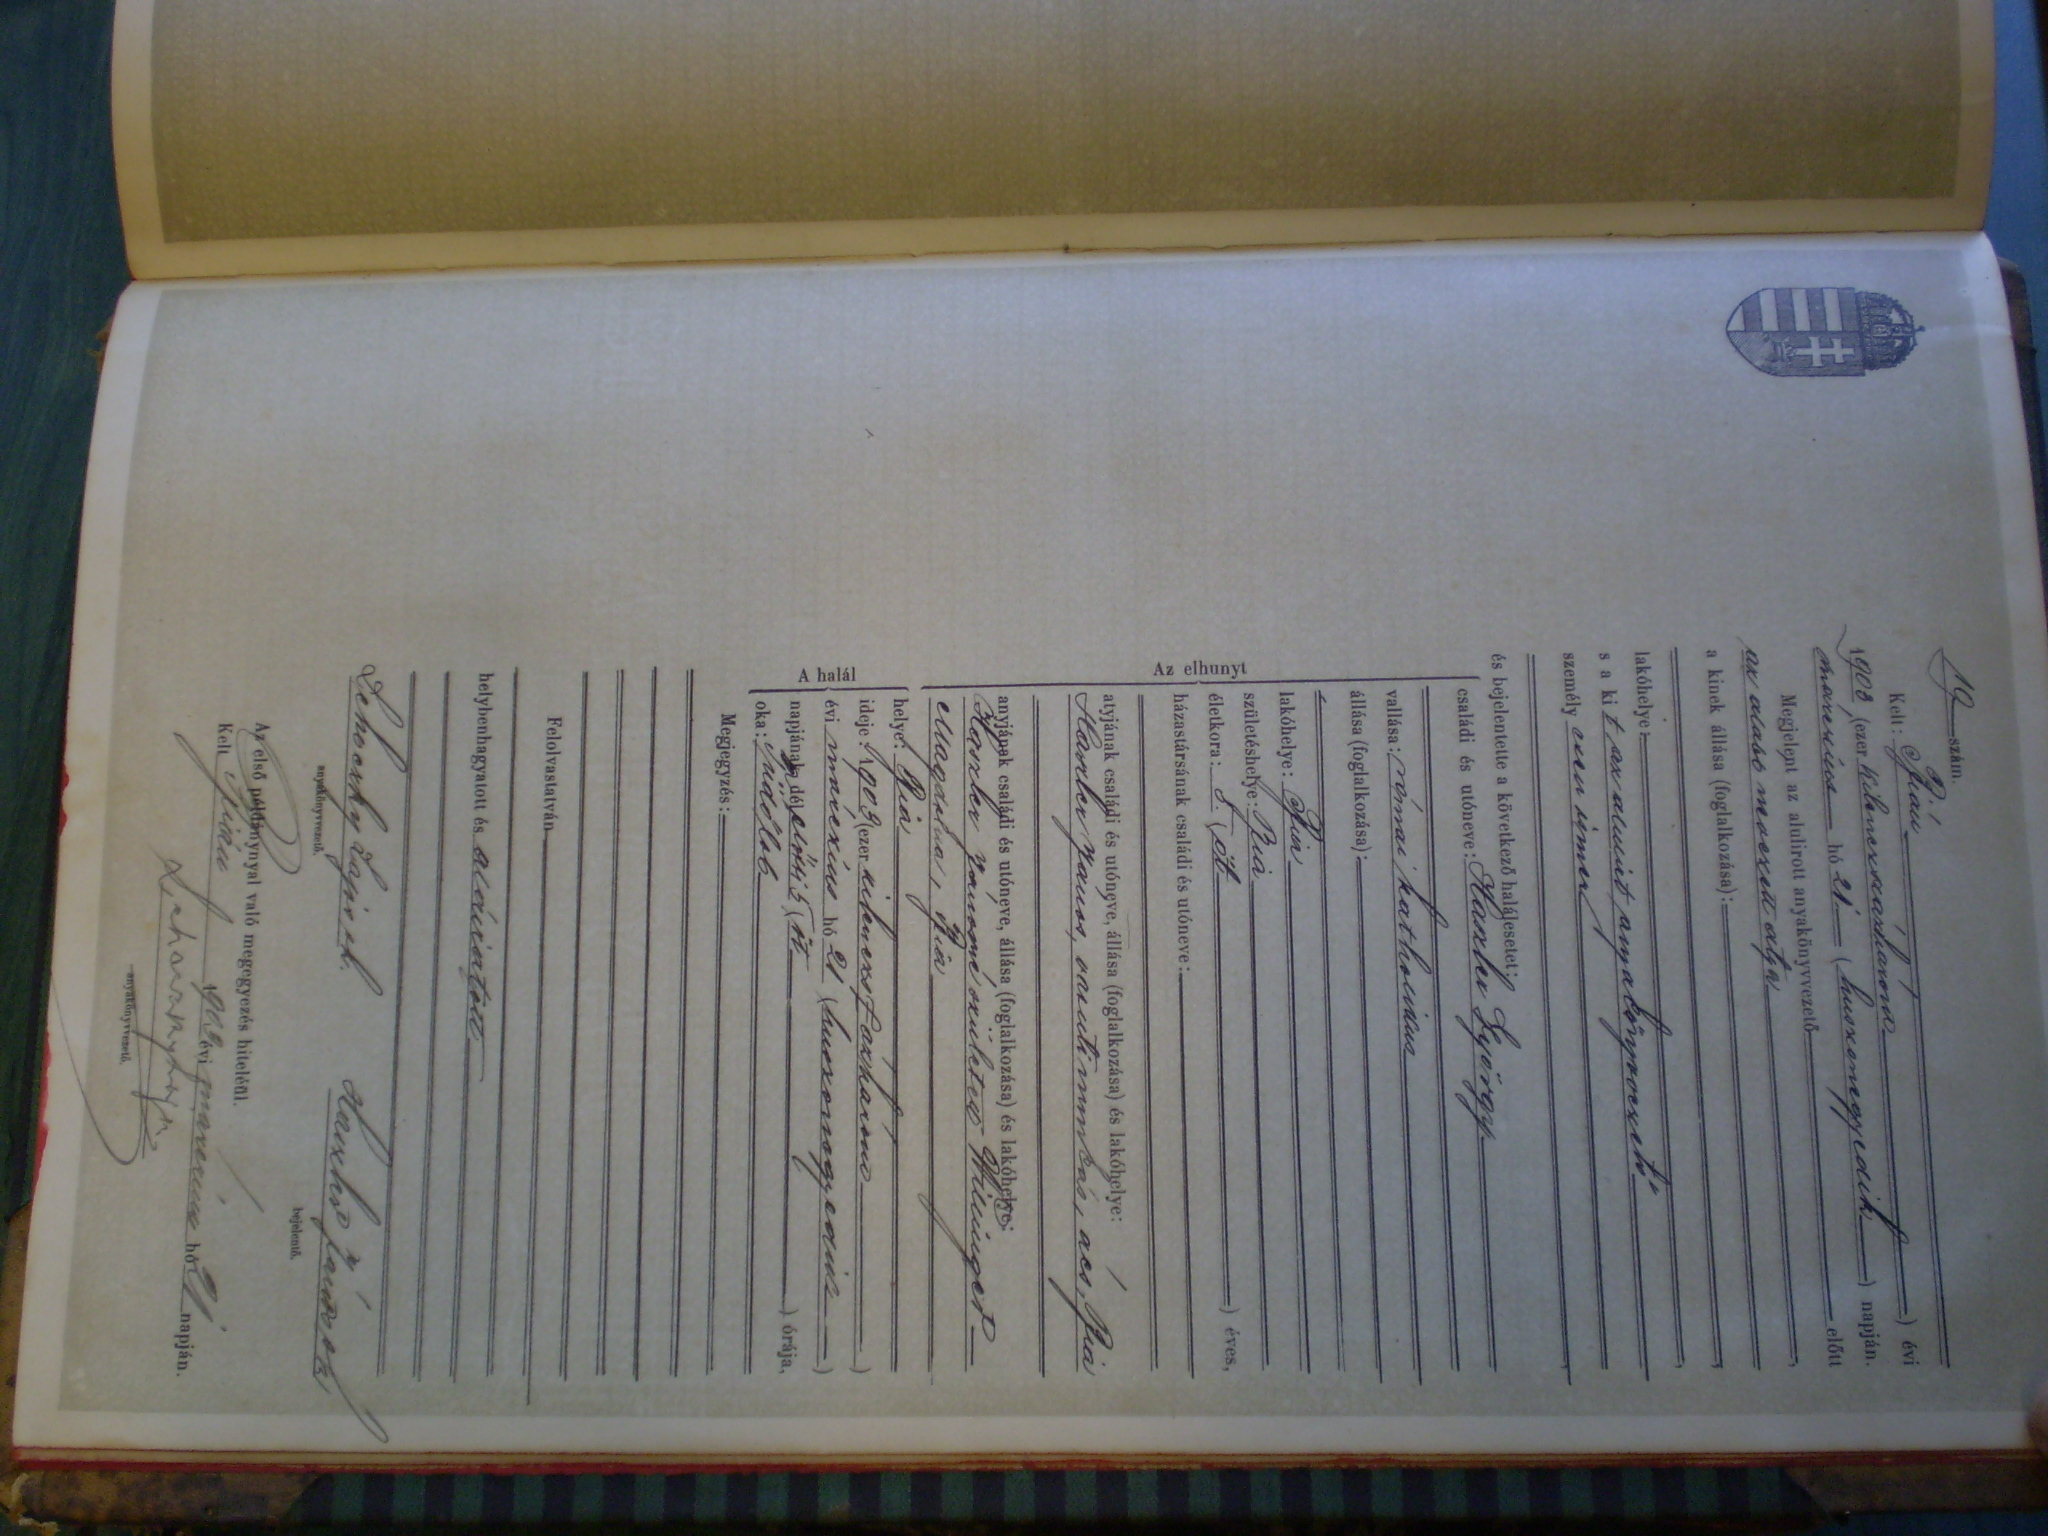 19 szám.
Kelt: Bián
1903 (ezer kilencszázhárom) évi
március hó 21 (huszonegyedik) napján.
Megjelent az alulirott anyakönyvvezető előtt
az alább nevezett atyja
a kinek állása (foglalkozása):
lakóhelye:
s a kit az alulirt anyakönyvvezető
személyesen ismer,
és bejelentette a következő halálesetet:
Az elhunyt
családi és utóneve: Hanzler György
vallása: római katholikus
állása (foglalkozása):
lakóhelye: Bia
születéshelye: Bia
életkora: 5. (öt) éves,
házastársának családi és utóneve:
atyjának családi és utóneve, állása (foglalkozása) és lakóhelye:
Hanzler János, ács, Bia
anyjának családi és utóneve, állása (foglalkozása) és lakóhelye:
Hanzler Jánosné született Willinger
Magdolna, Bia
A halál
helye: Bia
ideje 1903 (ezer kilencszázhárom)
évi március hó 21 (huszonegyedik)
napjának délelőtti 5 (öt) órája,
oka:
Megjegyzés:
Felolvastatván
helybenhagyatott és aláíratott
Lehoczky anyakönyvvezető.
Hanzler János bejelentő.
Az első példánynyal való megegyezés hiteléül.
Kelt Bián 1903 évi március hó 21 napján.
anyakönyvvezető.